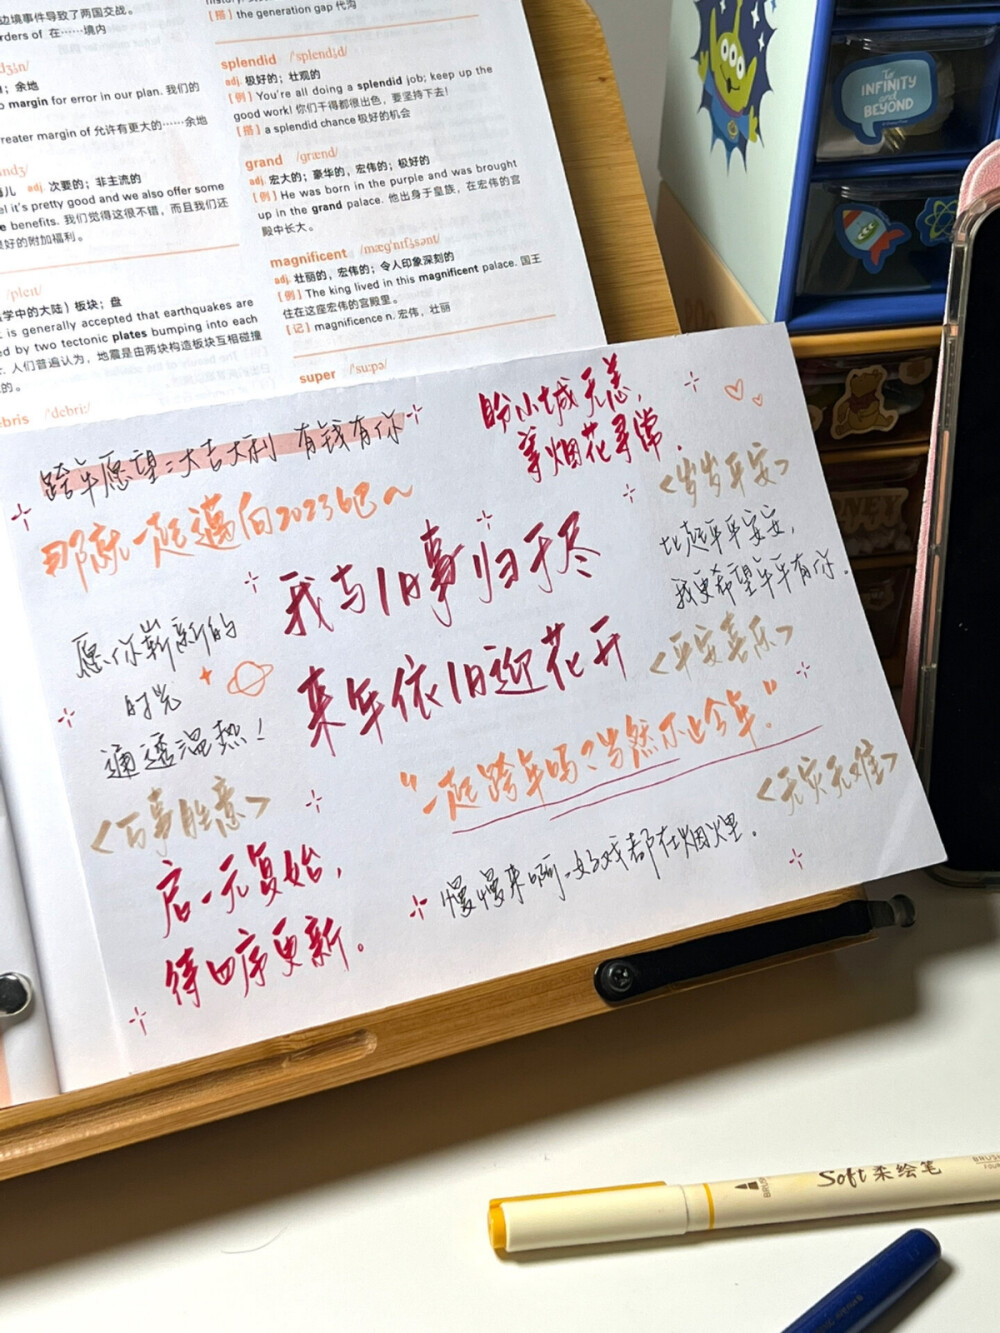 边境事件导致了两国交战。
rders of 在……境内
；余地
margin for error in our plan. 我们的
reater margin of 允许有更大的……余地
adj. 次要的；非主流的
el it's pretty good and we also offer some
e benefits. 我们觉得这很不错，而且我们还
很好的附加福利。
/pleɪt/
学中的大陆）板块；盘
t is generally accepted that earthquakes are
ed by two tectonic plates bumping into each
r. 人们普遍认为，地震是由两块构造板块相碰撞
的。
ebris /ˈdebriː/
[搭] the generation gap 代沟
splendid /ˈsplendɪd/
adj. 极好的；壮观的
[例] You're all doing a splendid job; keep up the
good work! 你们干得都很出色，要坚持下去！
[搭] a splendid chance 极好的机会
grand /ɡrænd/
adj. 宏大的；豪华的，宏伟的；极好的
[例] He was born in the purple and was brought
up in the grand palace. 他出身于皇族，在宏伟的宫
殿中长大。
magnificent /mæɡˈnɪfɪsənt/
adj. 壮丽的，宏伟的；令人印象深刻的
[例] The king lived in this magnificent palace. 国王
住在这座宏伟的宫殿里。
[记] magnificence n. 宏伟，壮丽
super /ˈsuːpə/
To
INFINITY
and
BEYOND
跨年愿望：大吉大利 有钱有你
那就一起迈向2023吧～
盼小城无恙，
等烟花寻常.
<岁岁平安>
比起平平安安，
我更希望年年有你.
<平安喜乐>
我与旧事归于尽
来年依旧迎花开
愿你崭新的
时光
通透温热！
<百事胜意>
"一起跨年吗？当然不止今年."
<无灾无难>
启一元复始，
待四序更新。
慢慢来啊 好戏都在烟火里.
Soft 柔绘笔
BRUSH